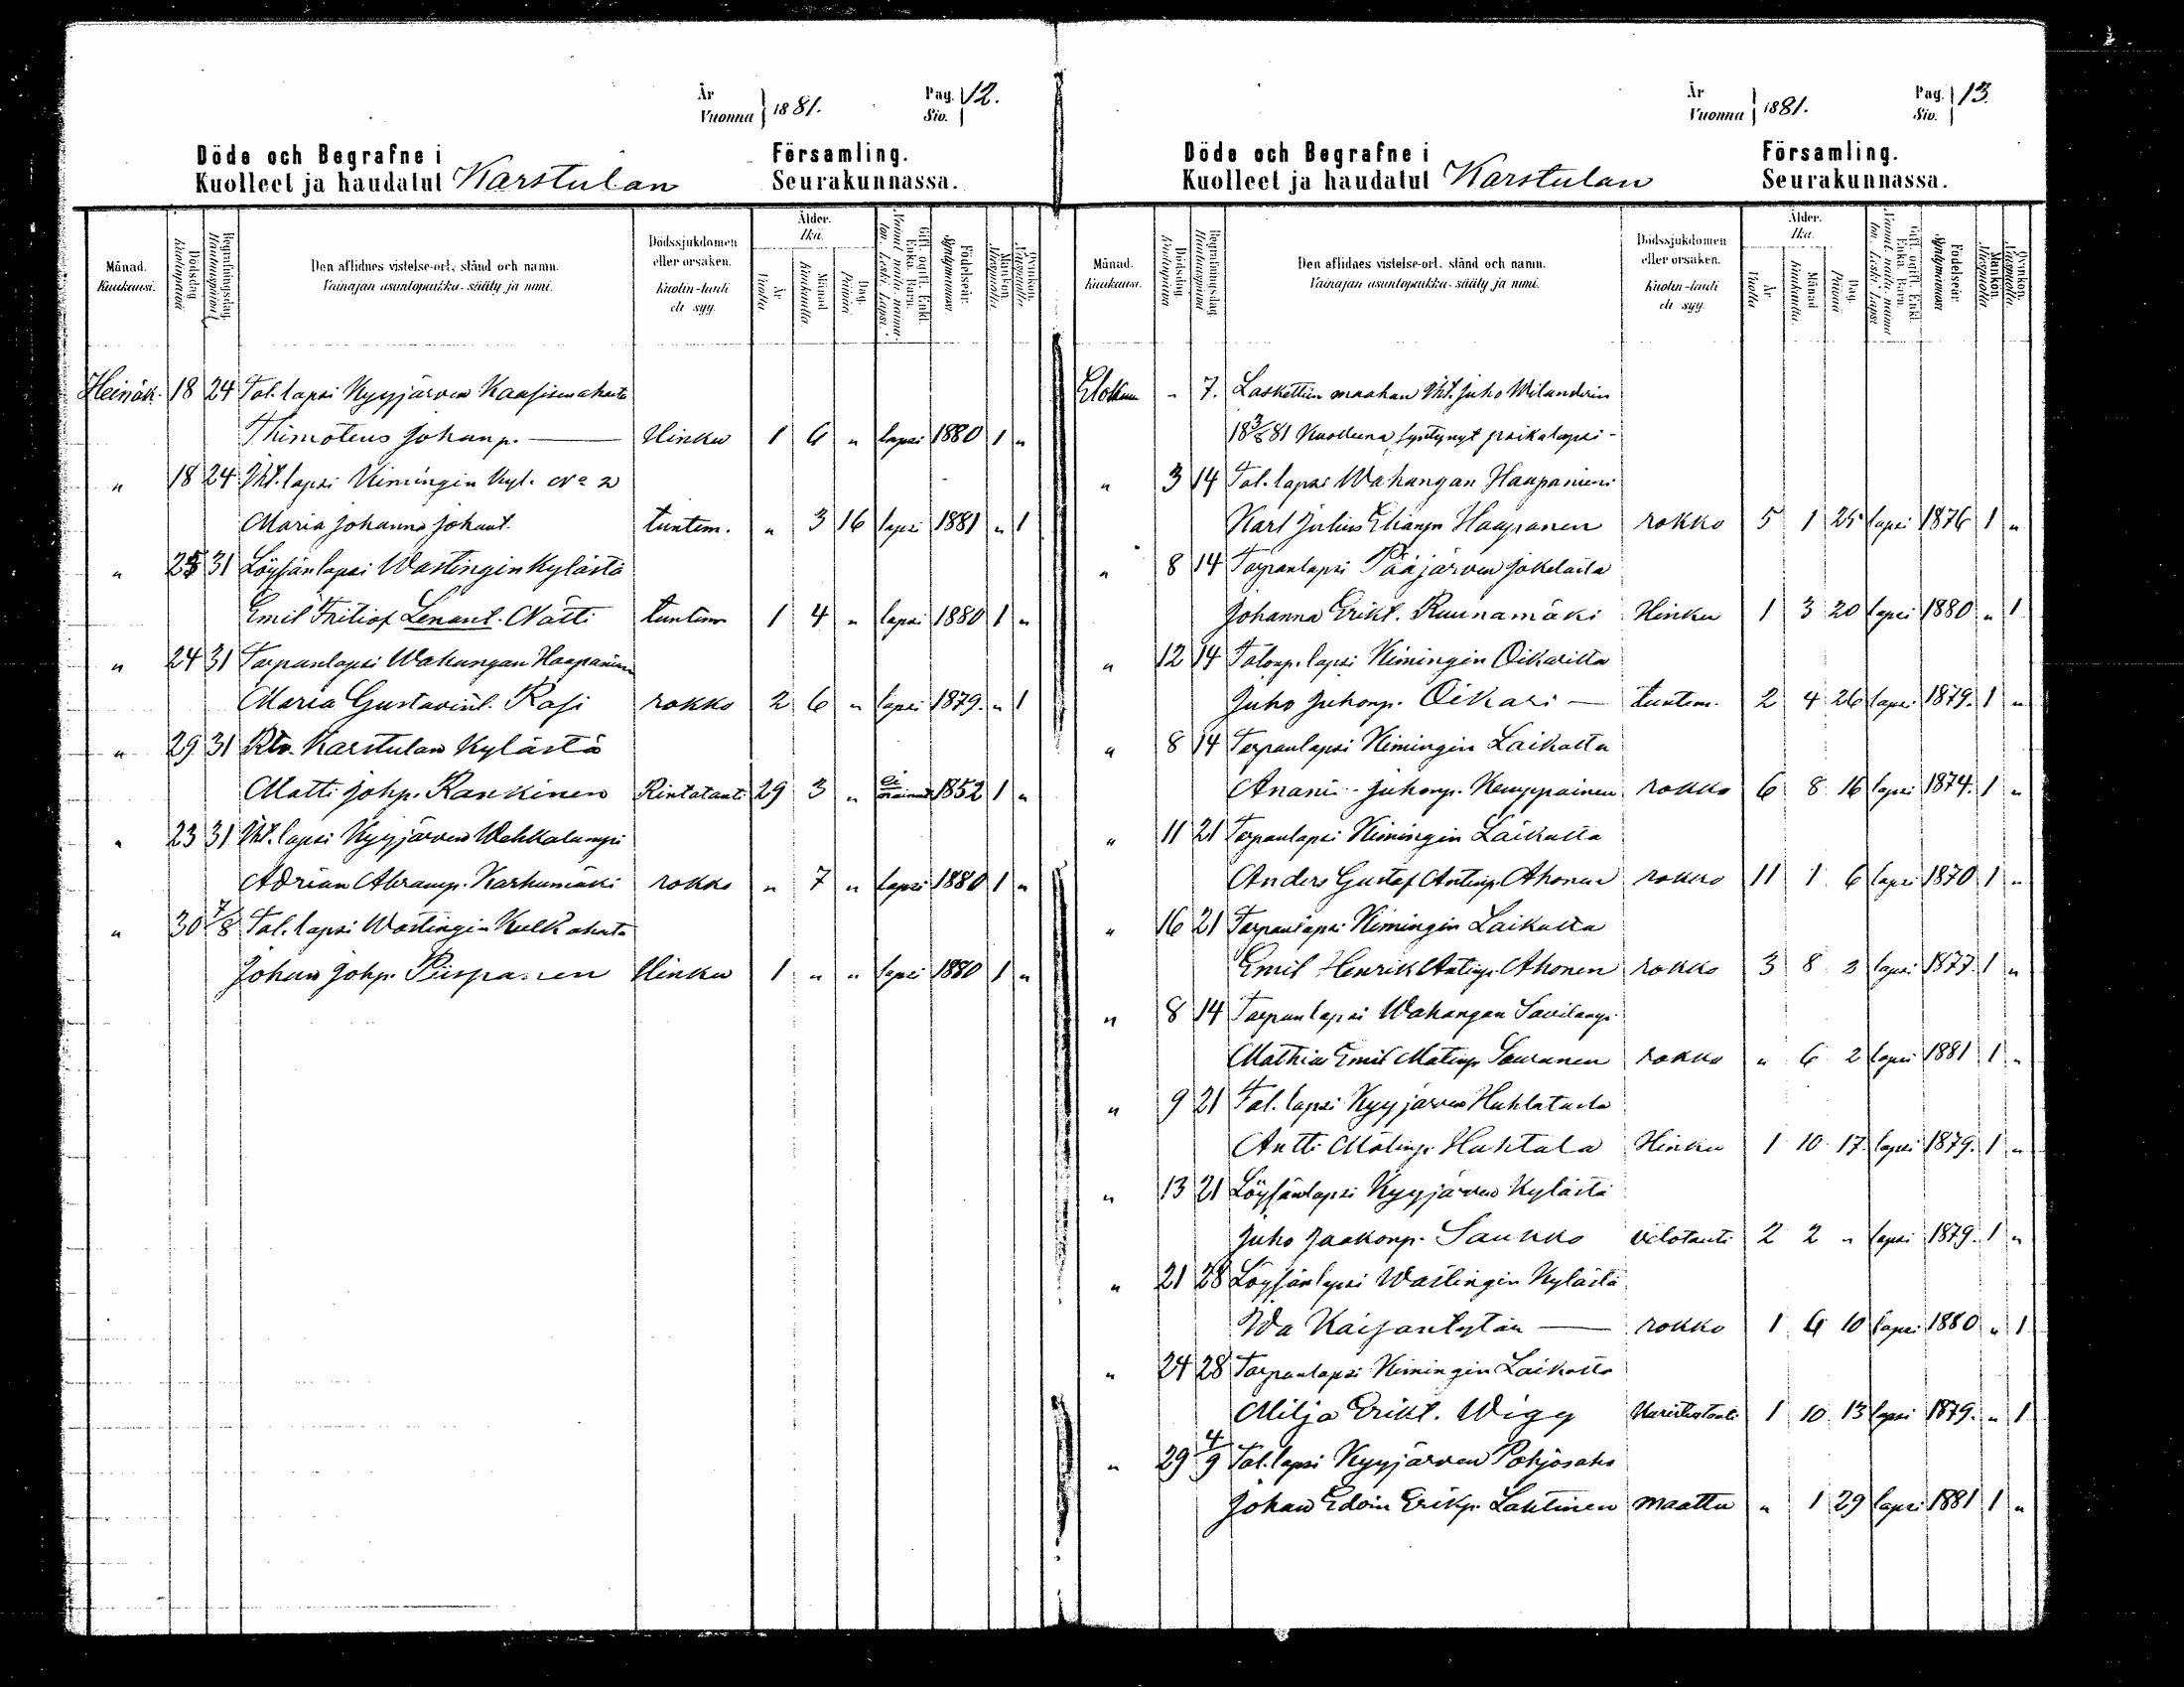 År Vuonna 1881. Pag. Siv. 12.
Döde och Begrafne i Församling.
Kuolleet ja haudatut Karstulan Seurakunnassa.
Månad. Kuukausi. Dödsdag Kuolinpäivä Begrafningsdag Hautauspäivä Den aflidnes vistelse-ort, stånd och namn. Vainajan asuntopaikka, sääty ja nimi. Dödssjukdomen eller orsaken. Kuolin-tauti eli syy. Ålder. Ikä. År Vuotta Månad Kuukautta Dag. Päivää Gift, ogift, Enkl. Enka, Barn. Födelseår. Syntymävuosi. Mankön. Miespuolia. Qvinkön. Vaispuolia.
Heinäk. 18 24 Tal. lapsi Kyyjärven
Thimoteus Johanp. Hinku 1 6 " lapsi 1880 1 "
" 18 24 Itl. lapsi Kimingin Kyl. No 2
Maria Johanna Johant. tuntem. " 3 16 lapsi 1881 " 1
" 25 31 Löysänlapsi Wastingin Kylästä
Emil Fritiof Lenant. Nätti tuntem 1 4 " lapsi 1880 1 "
" 24 31 Torpanlapsi Wahangan Haapaniem
Maria Gustavint. Rasi rokko 2 6 " lapsi 1879. " 1
" 29 31 Rtv. Karstulan Kylästä
Matti Johp. Rankinen Rintatauti 29 3 " ei nainut 1852 1 "
" 23 31 Itl. lapsi Kyyjärven Wehkalampi
Adrian Abramp. Karhumäki rokko " 7 " lapsi 1880 1 "
" 30 7/8 Tal. lapsi Wastingin
Johan Johp. Piispanen Hinku 1 " " lapsi 1880 1 "
År Vuonna 1881. Pag. Siv. 13.
Döde och Begrafne i Församling.
Kuolleet ja haudatut Karstulan Seurakunnassa.
Månad. Kuukausi. Dödsdag. Kuolinpäivä Begrafningsdag Hautauspäivä Den aflidnes vistelse-ort, stånd och namn. Vainajan asuntopaikka, sääty ja nimi. Dödssjukdomen eller orsaken. Kuolin-tauti eli syy. Ålder. Ikä. År Vuotta Månad Kuukautta. Dag. Päivää Gift, ogift, Enkl. Enka, Barn. Födelseår. Syntymävuosi Mankön. Miespuolia Qvinkön. Vaispuolia.
Elokuu " 7. Laskettiin maahan Itl. Juho Wilanderin
18 3/8 81 Kuolleena syntynyt poikalapsi -
" 3 14 Tal. lapsi Wahangan Haapaniemi
Karl Julius Haapanen rokko 5 1 25 lapsi 1876 1 "
" 8 14 Torpanlapsi Pääjärven Jokelasta
Johanna Erikt. Ruunamäki Hinku 1 3 20 lapsi 1880 " 1
" 12 14 Talonp. lapsi Kimingin Oikarilta
Juho Juhonp. Oikari tuntem. 2 4 26 lapsi 1879. 1 "
" 8 14 Torpanlapsi Kimingin Laikasta
Anani Juhonp. Kemppainen rokko 6 8 16 lapsi 1874. 1 "
" 11 21 Torpanlapsi Kimingin Laikasta
Anders Gustaf Antinp. Ahonen rokko 11 1 6 lapsi 1870 1 "
" 16 21 Torpanlapsi Kimingin Laikasta
Emil Henrik Antinp. Ahonen rokko 3 8 3 lapsi 1877. 1 "
" 8 14 Torpanlapsi Wahangan Savilampi
Mathias Emil Matinp. Sauranen rokko " 6 2 lapsi 1881 1 "
" 9 21 Tal. lapsi Kyyjärven Huhtalasta
Antti Matinp. Huhtala Hinku 1 10 17. lapsi 1879. 1 "
" 13 21 Löysänlapsi Kyyjärven Kylästä
Juho Jaakonp. Saukko vilotauti 2 2 " lapsi 1879. 1 "
" 21 28 Löysänlapsi Wastingin Kylästä
Ida Kaisantytär rokko 1 6 10 lapsi 1880 " 1
" 24 28 Torpanlapsi Kimingin Laikasta
Milja Erikt. Wigg 1 10 13 lapsi 1879. " 1
" 29 4/9 Tal. lapsi Kyyjärven Pohjosaho
Johan Edvin Erikp. Lahtinen maattu " 1 29 lapsi 1881 1 "